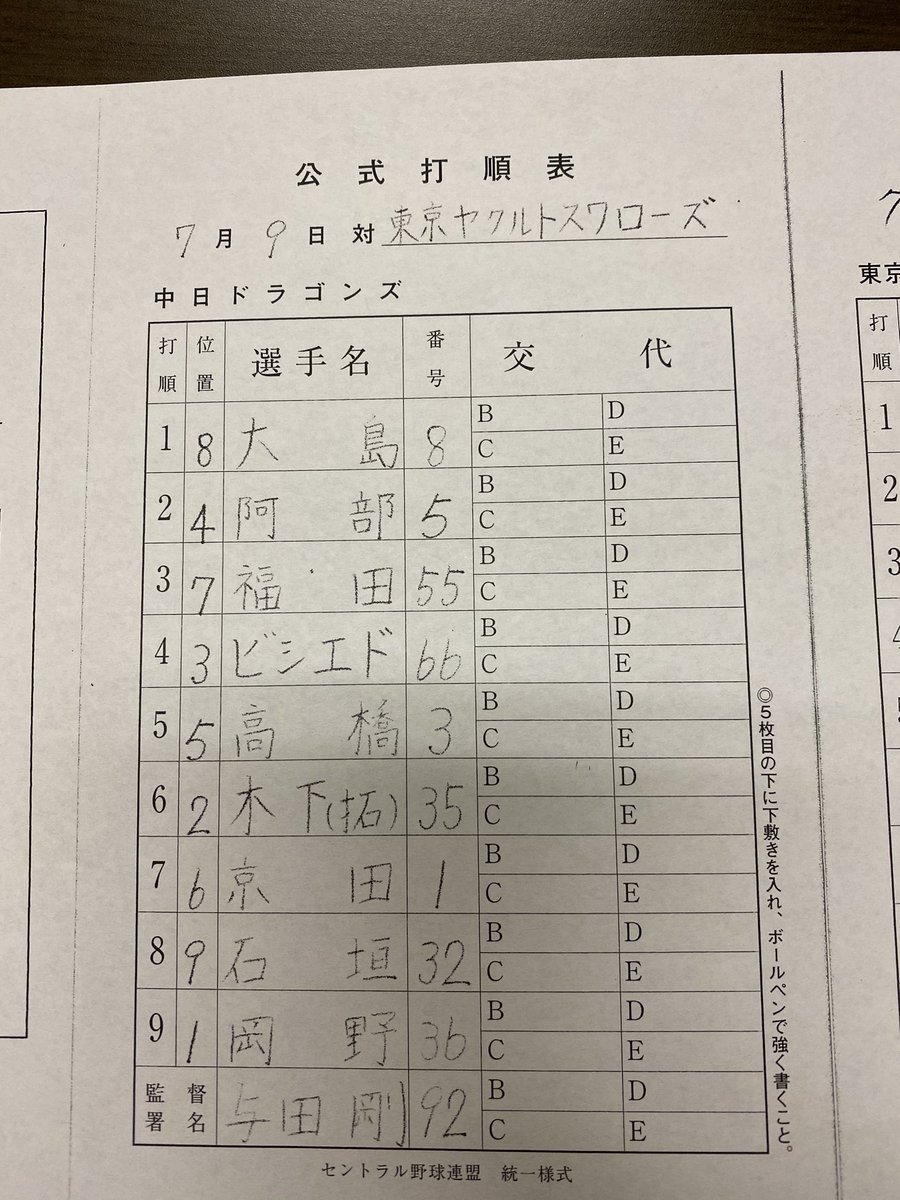 公式打順表
7月9日対東京ヤクルトスワローズ
中日ドラゴンズ
打順 位置 選手名 番号 交代
1 8 大島 8 B D C E
2 4 阿部 5 B D C E
3 7 福田 55 B D C E
4 3 ビシエド 66 B D C E
5 5 高橋 3 B D C E
6 2 木下(拓) 35 B D C E
7 6 京田 1 B D C E
8 9 石垣 32 B D C E
9 1 岡野 36 B D C E
監督署名 与田剛 92 B D C E
◎5枚目の下に下敷きを入れ、ボールペンで強く書くこと。
セントラル野球連盟 統一様式
7
東京
打順
1
2
3
4